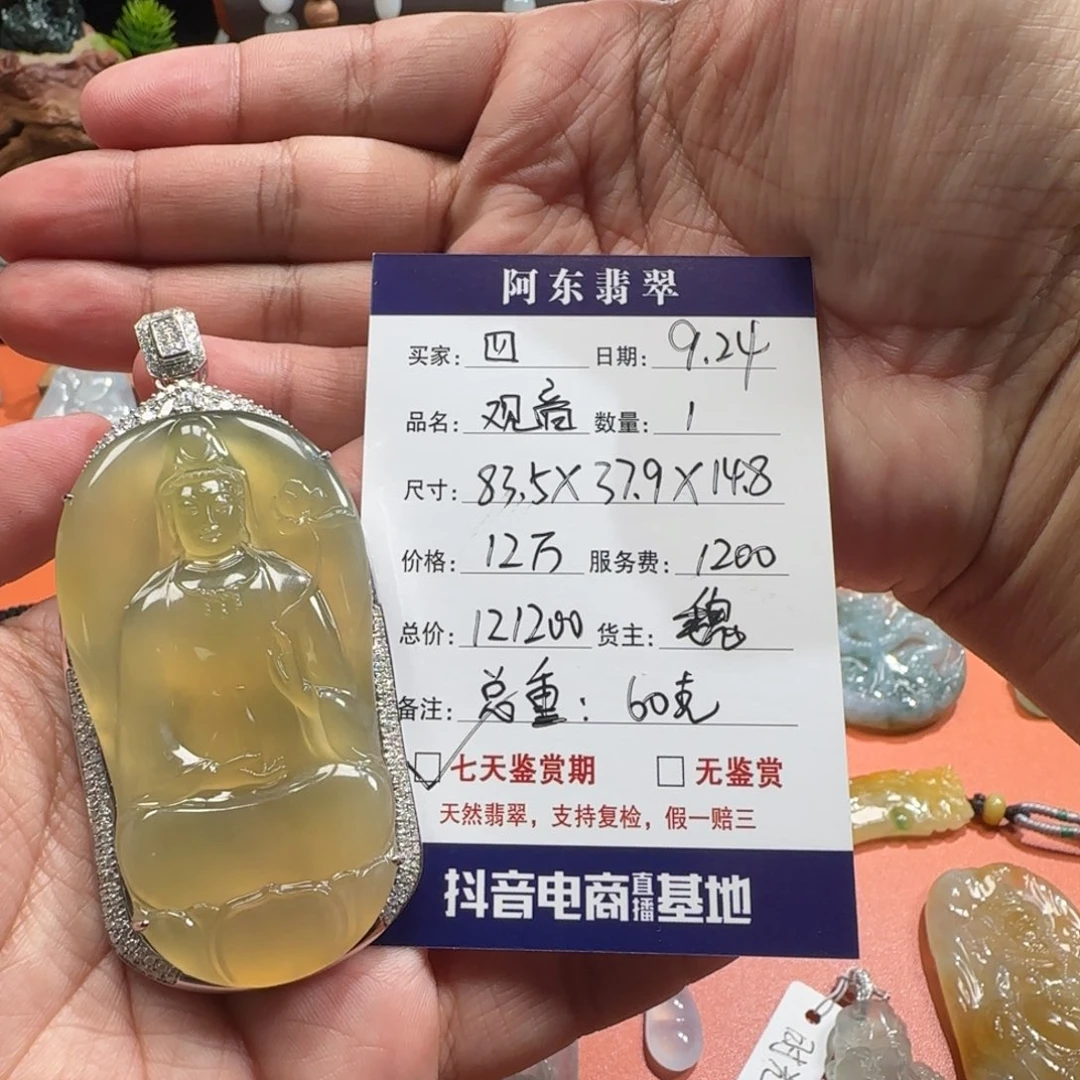 阿东翡翠
买家: 四 日期: 9.24
品名: 观音 数量: 1
尺寸: 83.5X37.9X14.8
价格: 12万 服务费: 1200
总价: 121200 货主: 魏
备注: 总重: 60克
七天鉴赏期 无鉴赏
天然翡翠，支持复检，假一赔三
抖音电商直播基地